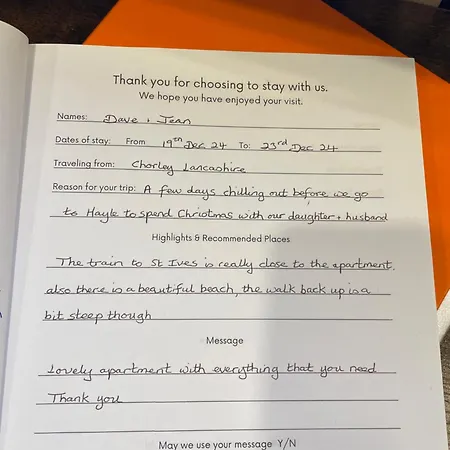 Thank you for choosing to stay with us.
We hope you have enjoyed your visit.
Names: Dave + Jean
Dates of stay: From 19th Dec 24 To: 23rd Dec 24
Traveling from: Chorley Lancashire
Reason for your trip: A few days chilling out before we go
to Hayle to spend Christmas with our daughter + husband
Highlights & Recommended Places
The train to St Ives is really close to the apartment.
also there is a beautiful beach, the walk back up is a
bit steep though
Message
Lovely apartment with everything that you need
Thank you
May we use your message Y/N